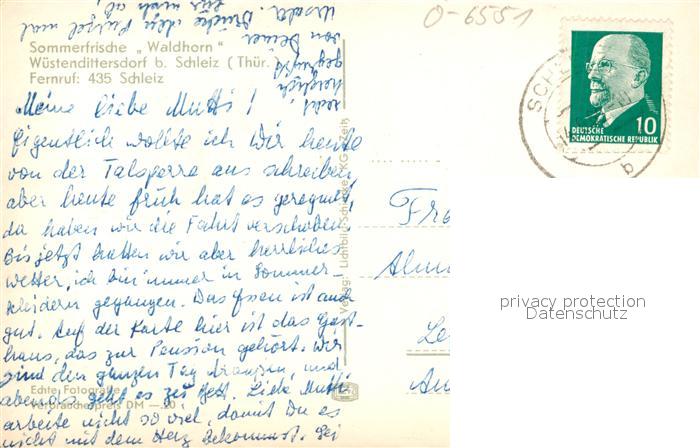 Sommerfrische „Waldhorn"
Wüstendittersdorf b. Schleiz (Thür.)
Fernruf: 435 Schleiz
Meine liebe Mutti!
Eigentlich wollte ich Dir heute
von der Talsperre aus schreiben,
aber heute früh hat es geregnet,
da haben wir die Fahrt verschoben.
Bis jetzt hatten wir aber herrliches
Wetter, ich bin immer in Sommer-
kleidern gegangen. Das Essen ist auch
gut. Auf der Karte hier ist das Gast-
haus, das zur Pension gehört. Wir
sind den ganzen Tag draußen, und
abends geht es zu Bett. Liebe Mutti
arbeite nicht so viel, damit Du es
nicht mit dem Herz bekommst. Sei
recht
herzlich
gegrüßt
von Deiner
Ursula. Drücke den
mal
für mich ab!
Echte Fotografie
Verbraucherpreis DM —.20
Verlag: Lichtbild
KG Zeitz
O-6551
SCH
b
10
DEUTSCHE
DEMOKRATISCHE REPUBLIK
Fra
Alm
Le
privacy protection
Datenschutz